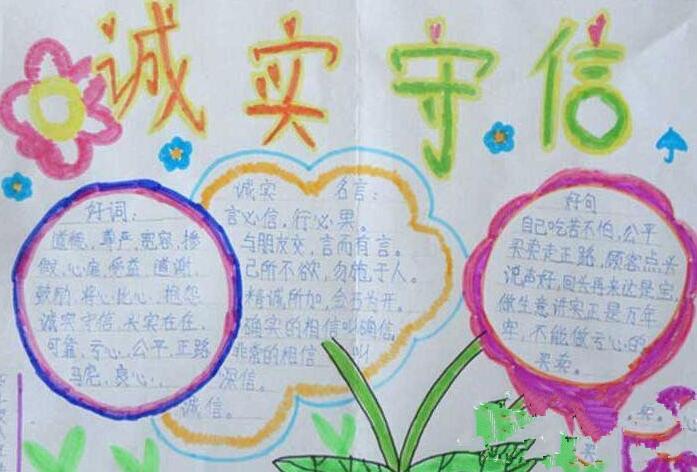 诚实守信
好词:
道德,尊严,宽容,掺
假,心虚,受益,道谢,
鼓励,将心比心,抱怨
诚实守信,实实在在,
可靠,亏心,公平,正路
马克,良心,
诚实 名言:
言必信,行必果。
与朋友交,言而有信。
己所不欲,勿施于人。
精诚所加,金石为开。
确实的相信叫确信,
非常的相信 叫
深信。
诚信。
好句
自己吃苦不怕,公平
买卖走正路,顾客点头
说声好,回头再来这是宝,
做生意讲实正是万年
牢,不能做亏心的
买卖。